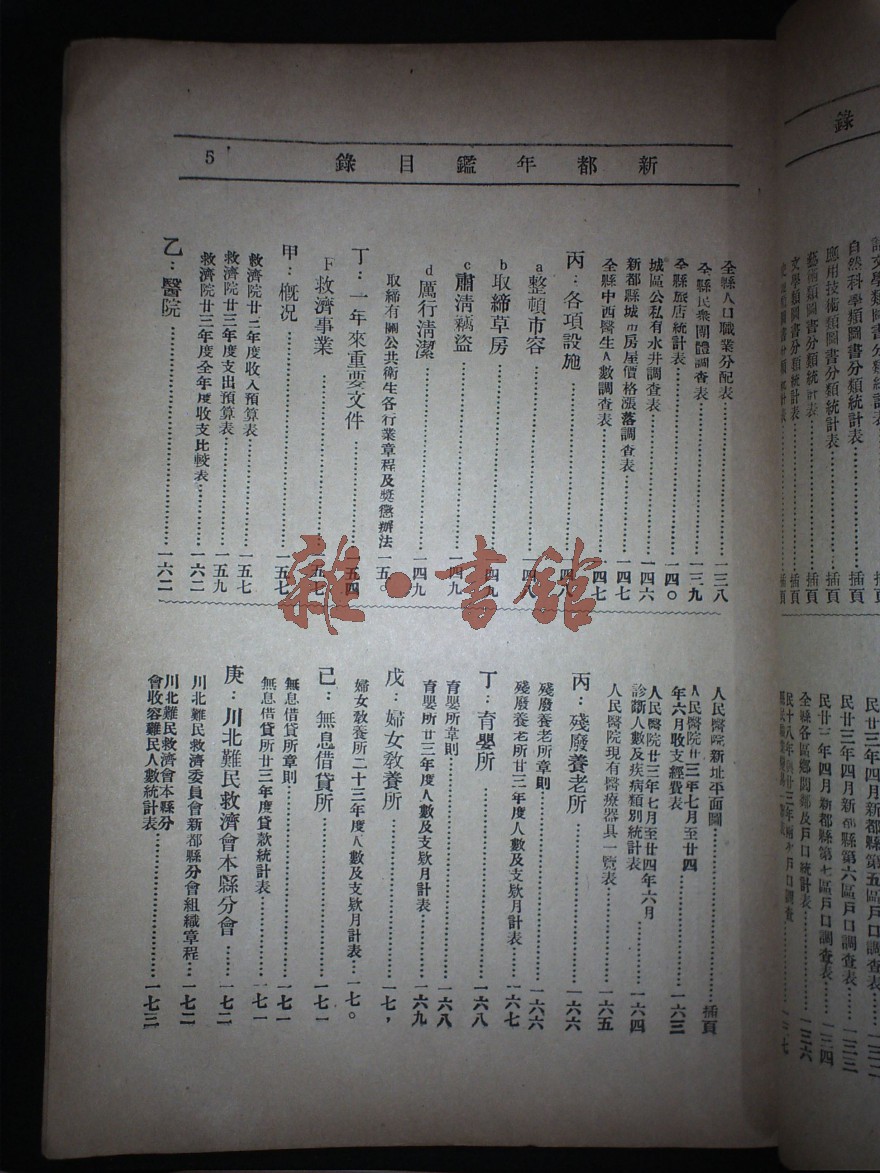 新都年鑑目錄
5
全縣人口職業分配表…………一三八
全縣民衆團體調查表…………一三九
全縣旅店統計表…………一四〇
城區公私有水井調查表…………一四六
新都縣城內房屋價格漲落調查表…………一四七
全縣中西醫生人數調查表…………一四七
丙：各項設施…………一四八
a 整頓市容…………一四八
b 取締草房…………一四九
c 肅清竊盜…………一四九
d 厲行清潔…………一四九
取締有關公共衛生各行業章程及獎懲辦法 一五〇
丁：一年來重要文件…………一五四
F 救濟事業…………一五七
甲：概況…………一五七
救濟院廿三年度收入預算表…………一五七
救濟院廿三年度支出預算表…………一五九
救濟院廿三年度全年度收支比較表…………一六二
乙：醫院…………一六二
人民醫院新址平面圖…………插頁
人民醫院廿三年七月至廿四
年六月收支經費表…………一六三
人民醫院廿三年七月至廿四年六月
診斷人數及疾病類別統計表…………一六四
人民醫院現有醫療器具一覽表…………一六五
丙：殘廢養老所…………一六六
殘廢養老所章則…………一六六
殘廢養老所廿三年度人數及支欵月計表…一六七
丁：育嬰所…………一六八
育嬰所章則…………一六八
育嬰所廿三年度人數及支欵月計表…………一六九
戊：婦女敎養所…………一七,
婦女敎養所二十三年度人數及支欵月計表…一七。
已：無息借貸所…………一七一
無息借貸所章則…………一七一
無息借貸所廿三年度貸款統計表…………一七一
庚：川北難民救濟會本縣分會……一七二
川北難民救濟委員會新都縣分會組織章程…一七二
川北難民救濟會本縣分
會收容難民人數統計表…………一七三
錄
自然科學類圖書分類統計表…………插頁
應用技術類圖書分類統計表…………插頁
藝術類圖書分類統計表…………插頁
文學類圖書分類統計表…………插頁
民廿三年四月新都縣第五區戶口調查表
民廿三年四月新都縣第六區戶口調查表……一三三
民廿三年四月新都縣第七區戶口調查表……一三四
全縣各區鄉閭鄰及戶口統計表…………一三六
雜·書館